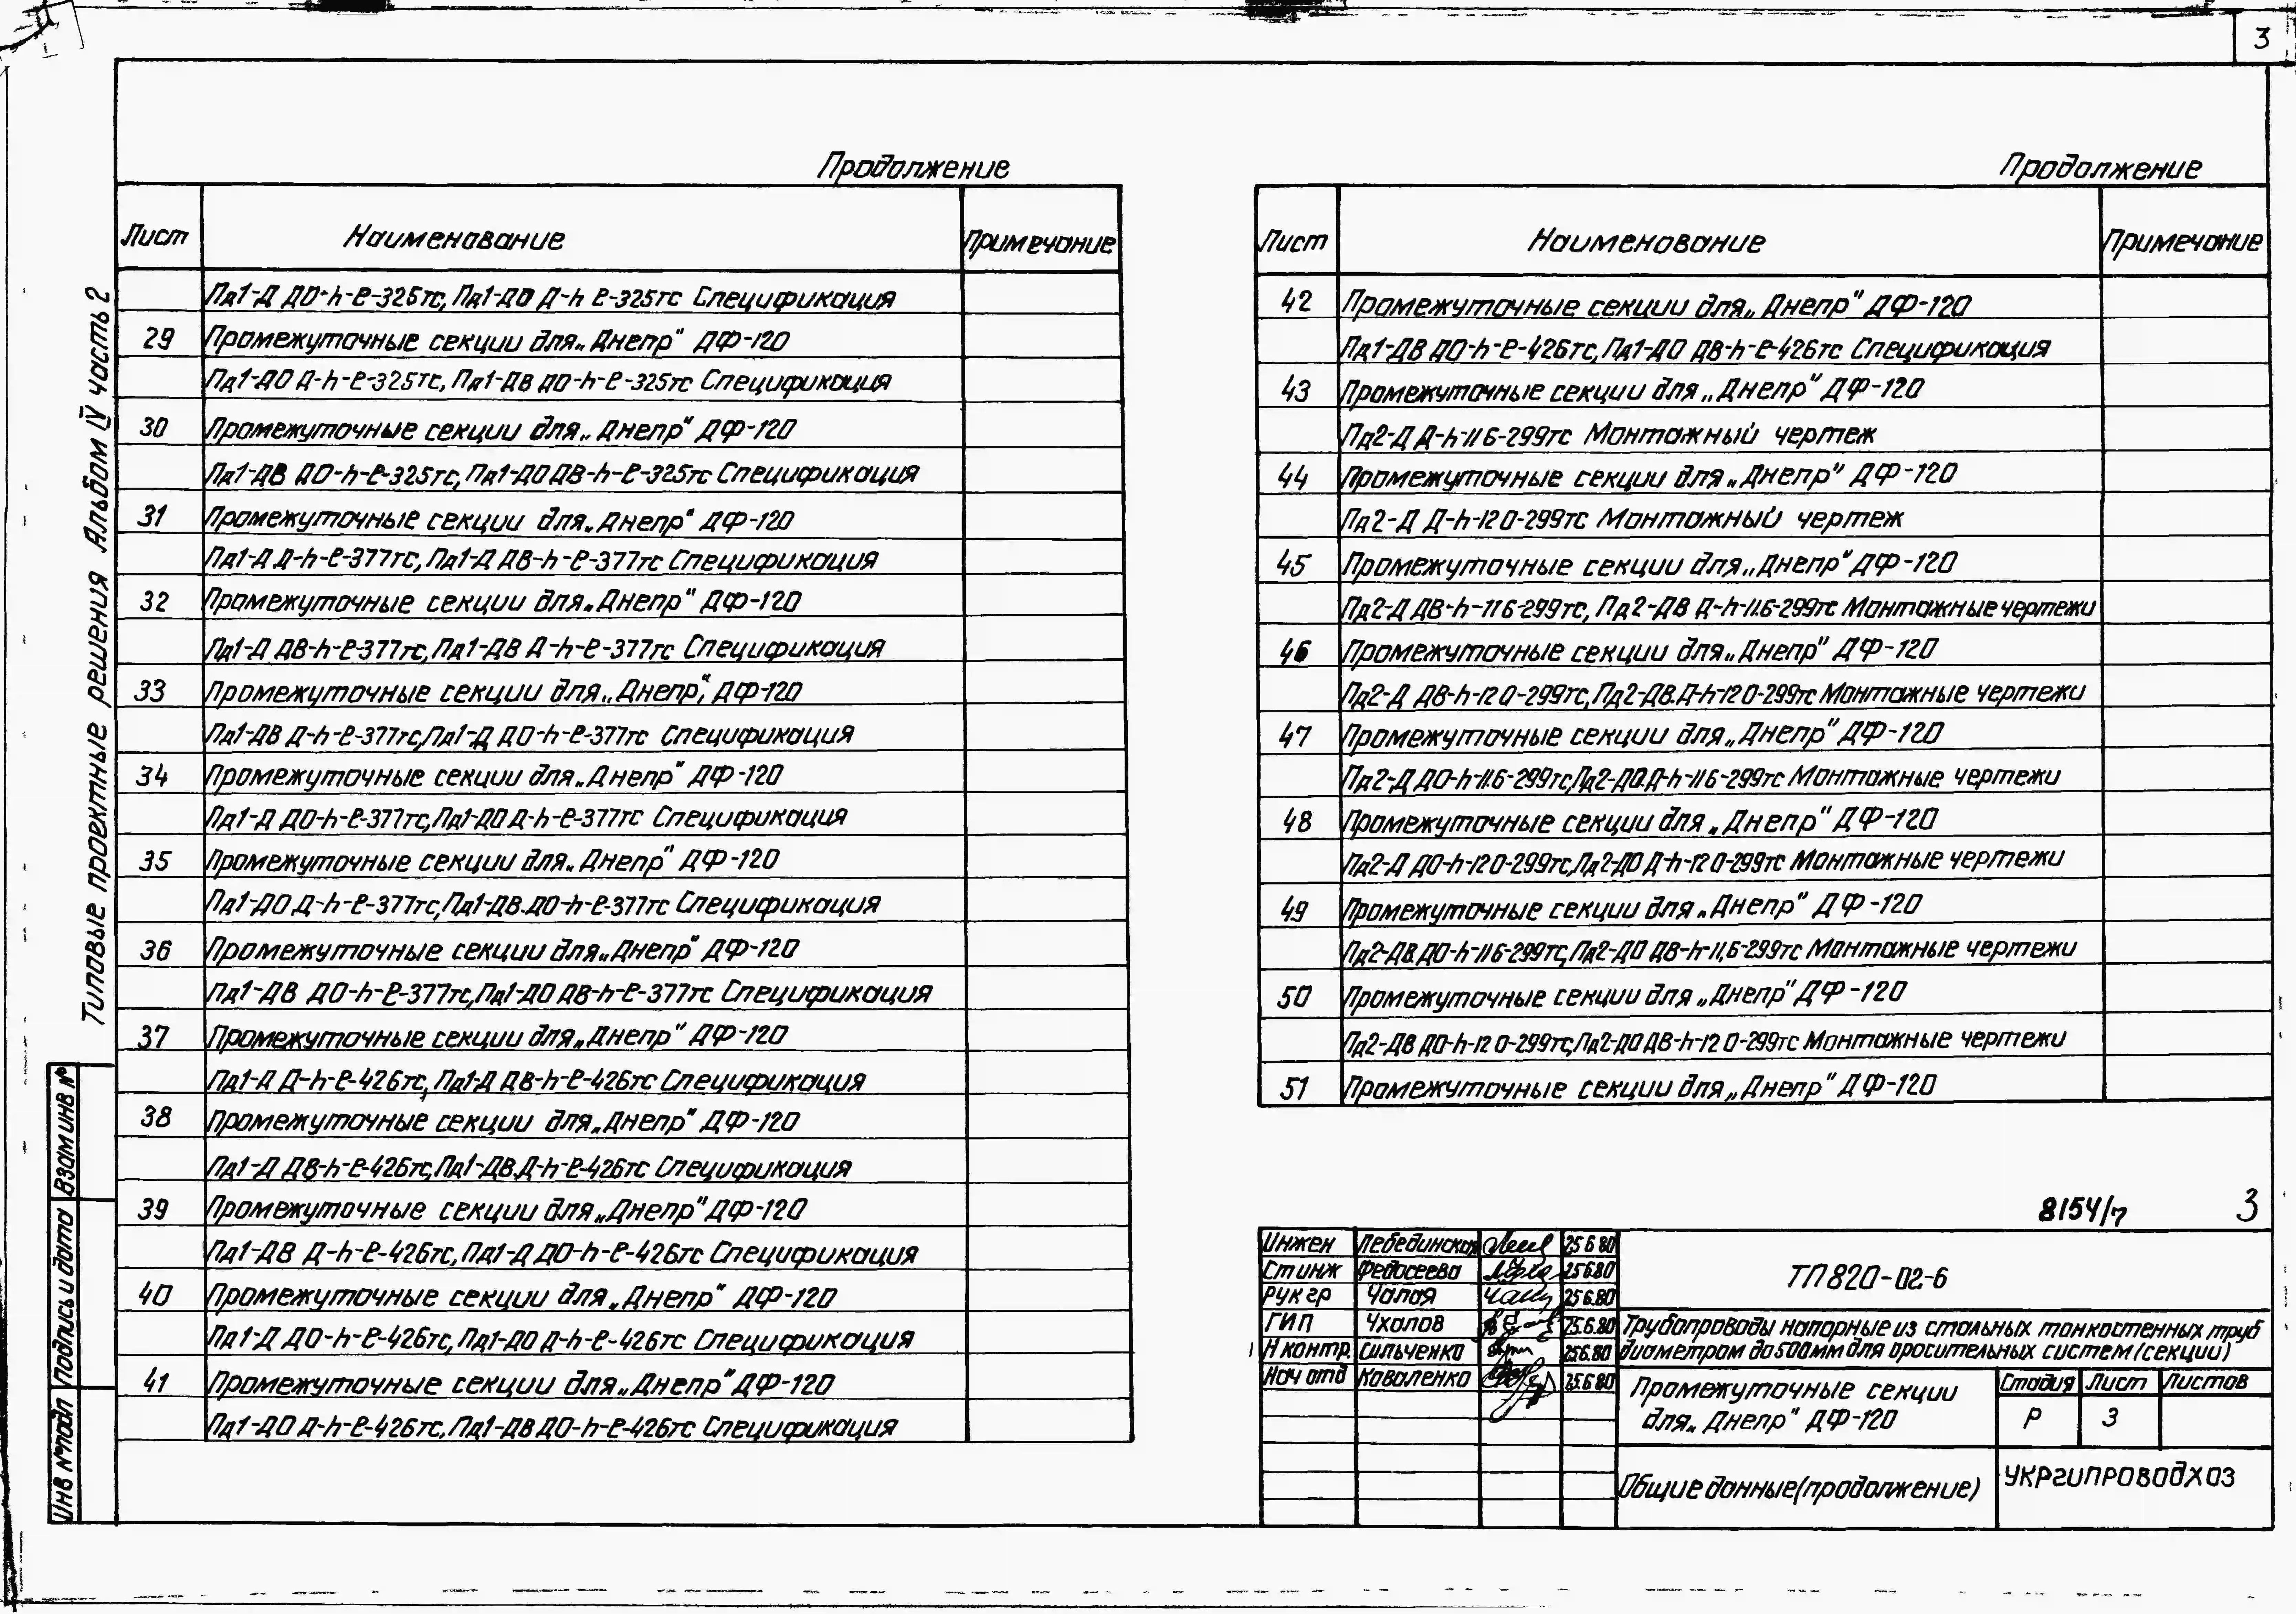 3
Типовые проектные решения Альбом IV часть 2
Продолжение
Лист Наименование Примечание
Пд1-Д ДО-h-ℓ-325тс, Пд1-ДО Д-h ℓ-325тс Спецификация
29 Промежуточные секции для „Днепр" ДФ-120
Пд1-ДО Д-h-ℓ-325тс, Пд1-ДВ ДО-h-ℓ-325тс Спецификация
30 Промежуточные секции для „Днепр" ДФ-120
Пд1-ДВ ДО-h-ℓ-325тс, Пд1-ДО ДВ-h-ℓ-325тс Спецификация
31 Промежуточные секции для „Днепр" ДФ-120
Пд1-Д Д-h-ℓ-377тс, Пд1-Д ДВ-h-ℓ-377тс Спецификация
32 Промежуточные секции для „Днепр" ДФ-120
Пд1-Д ДВ-h-ℓ-377тс, Пд1-ДВ Д-h-ℓ-377тс Спецификация
33 Промежуточные секции для „Днепр", ДФ-120
Пд1-ДВ Д-h-ℓ-377тс, Пд1-Д ДО-h-ℓ-377тс Спецификация
34 Промежуточные секции для „Днепр" ДФ-120
Пд1-Д ДО-h-ℓ-377тс, Пд1-ДО Д-h-ℓ-377тс Спецификация
35 Промежуточные секции для „Днепр" ДФ-120
Пд1-ДО Д-h-ℓ-377тс, Пд1-ДВ.ДО-h-ℓ-377тс Спецификация
36 Промежуточные секции для „Днепр" ДФ-120
Пд1-ДВ ДО-h-ℓ-377тс, Пд1-ДО ДВ-h-ℓ-377тс Спецификация
37 Промежуточные секции для „Днепр" ДФ-120
Пд1-Д Д-h-ℓ-426тс, Пд1-Д ДВ-h-ℓ-426тс Спецификация
38 Промежуточные секции для „Днепр" ДФ-120
Пд1-Д ДВ-h-ℓ-426тс, Пд1-ДВ.Д-h-ℓ-426тс Спецификация
39 Промежуточные секции для „Днепр" ДФ-120
Пд1-ДВ Д-h-ℓ-426тс, Пд1-Д ДО-h-ℓ-426тс Спецификация
40 Промежуточные секции для „Днепр" ДФ-120
Пд1-Д ДО-h-ℓ-426тс, Пд1-ДО Д-h-ℓ-426тс Спецификация
41 Промежуточные секции для „Днепр" ДФ-120
Пд1-ДО Д-h-ℓ-426тс, Пд1-ДВ ДО-h-ℓ-426тс Спецификация
Продолжение
Лист Наименование Примечание
42 Промежуточные секции для „Днепр" ДФ-120
Пд1-ДВ ДО-h-ℓ-426тс, Пд1-ДО ДВ-h-ℓ-426тс Спецификация
43 Промежуточные секции для „Днепр" ДФ-120
Пд2-Д Д-h-11 6-299тс Монтажный чертеж
44 Промежуточные секции для „Днепр" ДФ-120
Пд2-Д Д-h-12 0-299тс Монтажный чертеж
45 Промежуточные секции для „Днепр" ДФ-120
Пд2-Д ДВ-h-11 6-299тс, Пд2-ДВ Д-h-11.6-299тс Монтажные чертежи
46 Промежуточные секции для „Днепр" ДФ-120
Пд2-Д ДВ-h-12 0-299тс, Пд2-ДВ.Д-h-12 0-299тс Монтажные чертежи
47 Промежуточные секции для „Днепр" ДФ-120
Пд2-Д ДО-h-11.6-299тс, Пд2-ДО.Д-h-11 6-299тс Монтажные чертежи
48 Промежуточные секции для „Днепр" ДФ-120
Пд2-Д ДО-h-12 0-299тс, Пд2-ДО Д-h-12 0-299тс Монтажные чертежи
49 Промежуточные секции для „Днепр" ДФ-120
Пд2-ДВ.ДО-h-11 6-299тс, Пд2-ДО ДВ-h-11,6-299тс Монтажные чертежи
50 Промежуточные секции для „Днепр" ДФ-120
Пд2-ДВ ДО-h-12 0-299тс, Пд2-ДО ДВ-h-12 0-299тс Монтажные чертежи
51 Промежуточные секции для „Днепр" ДФ-120
8154/7 3
Инжен Лебединская 25 6 80
Ст инж Федосеева 25 6 80
Рук гр Чалая 25 6.80
ГИП Чхалов 25.6.80
Н контр. Сильченко 25 6.80
Нач отд Коваленко 25.6 80
ТП 820-02-6
Трубопроводы напорные из стальных тонкостенных труб
диаметром до 500мм для оросительных систем (секции)
Промежуточные секции
для „Днепр" ДФ-120
Стадия Лист Листов
Р 3
Общие данные (продолжение)
Укргипроводхоз
Взам инв №
Подпись и дата
Инв № подл